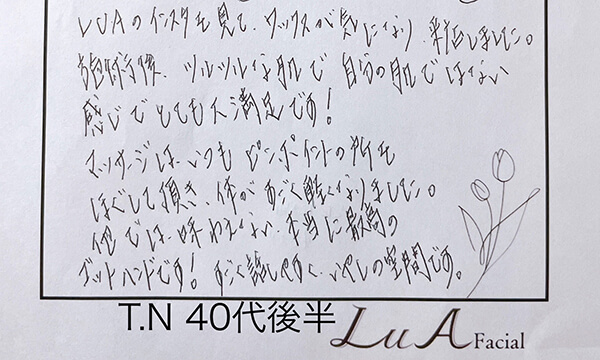 LUAのインスタを見て、ワックスが気になり、来店しました。
施術後、ツルツルな肌で自分の肌ではない
感じでとても大満足です!
マッサージは、いつもピンポイントの所を
ほぐして頂き、体がすごく軽くなりました。
他では味わえない、本当に最高の
ゴットハンドです! すごく話しやすく、いやしの空間です。
T.N 40代後半
LuA Facial